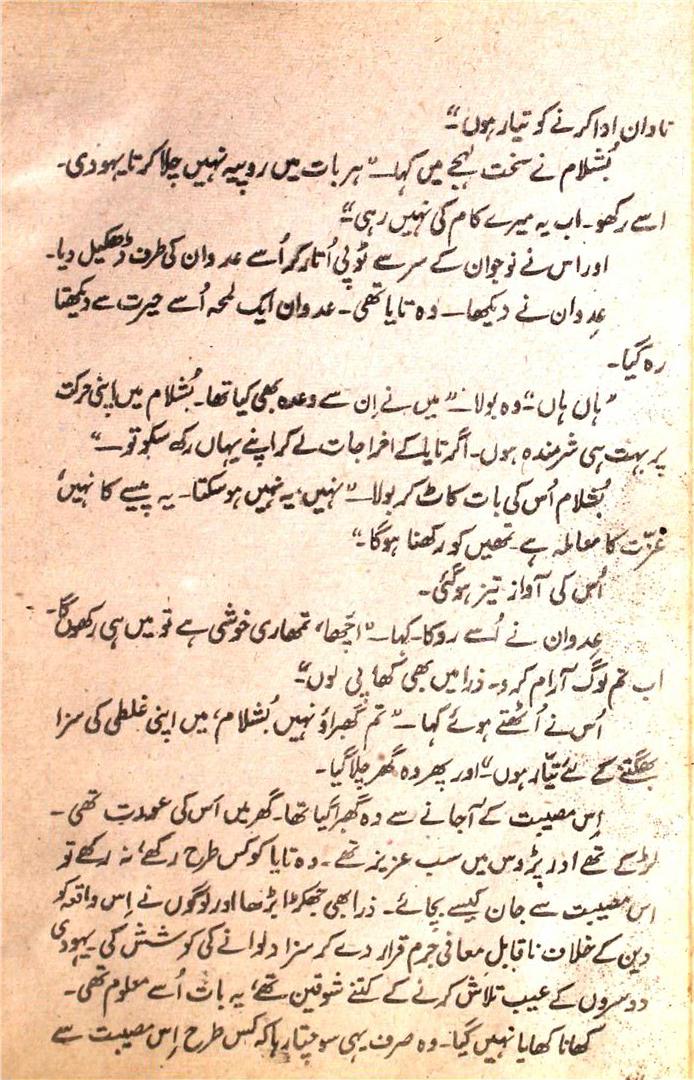 تاوان ادا کرنے کو تیار ہوں۔“
بُشلام نے سخت لہجے میں کہا۔ ”ہر بات میں روپیہ نہیں چلا کرتا یہودی۔
اسے رکھو۔ اب یہ میرے کام کی نہیں رہی۔“
اور اس نے نوجوان کے سر سے ٹوپی اُتار کر اُسے عدوان کی طرف دھکیل دیا۔
عدوان نے دیکھا۔ وہ تایا تھی۔ عدوان ایک لمحہ اُسے حیرت سے دیکھتا
رہ گیا۔
”ہاں ہاں“ وہ بولا۔ ”میں نے اِن سے وعدہ بھی کیا تھا۔ بُشلام میں اپنی حرکت
پر بہت ہی شرمندہ ہوں۔ اگر تایا کے اخراجات لے کر اپنے یہاں رکھ سکو تو۔“
بُشلام اُس کی بات کاٹ کر بولا۔ ”نہیں، یہ نہیں ہو سکتا۔ یہ پیسے کا نہیں،
عزّت کا معاملہ ہے۔ تمھیں کو رکھنا ہوگا۔“
اُس کی آواز تیز ہو گئی۔
عِدوان نے اُسے روکا۔ کہا۔ ”اچّھا، تمھاری خوشی ہے تو میں ہی رکھوں گا۔
اب تم لوگ آرام کرو۔ ذرا میں بھی کھا پی لوں۔“
اُس نے اُٹھتے ہوئے کہا۔ ”تم گھبراؤ نہیں بُشلام، میں اپنی غلطی کی سزا
بھگتنے کے لئے تیّار ہوں۔“ اور پھر وہ گھر چلا گیا۔
اِس مصیبت کے آجانے سے وہ گھبرا گیا تھا۔ گھر میں اس کی عورت تھی۔
لڑکے تھے اور پڑوس میں سب عزیز تھے۔ وہ تایا کو کس طرح رکھے، نہ رکھے تو
اس مصیبت سے جان کیسے بچائے۔ ذرا بھی جھگڑا بڑھا اور لوگوں نے اِس واقعہ کو
دین کے خلاف ناقابل معافی جرم قرار دے کر سزا دلوانے کی کوشش کی۔ یہودی
دوسروں کے عیب تلاش کرنے کے کتنے شوقین تھے، یہ بات اُسے معلوم تھی۔
کھانا کھایا نہیں گیا۔ وہ صرف یہی سوچتا رہا کہ کس طرح اِس مصیبت سے